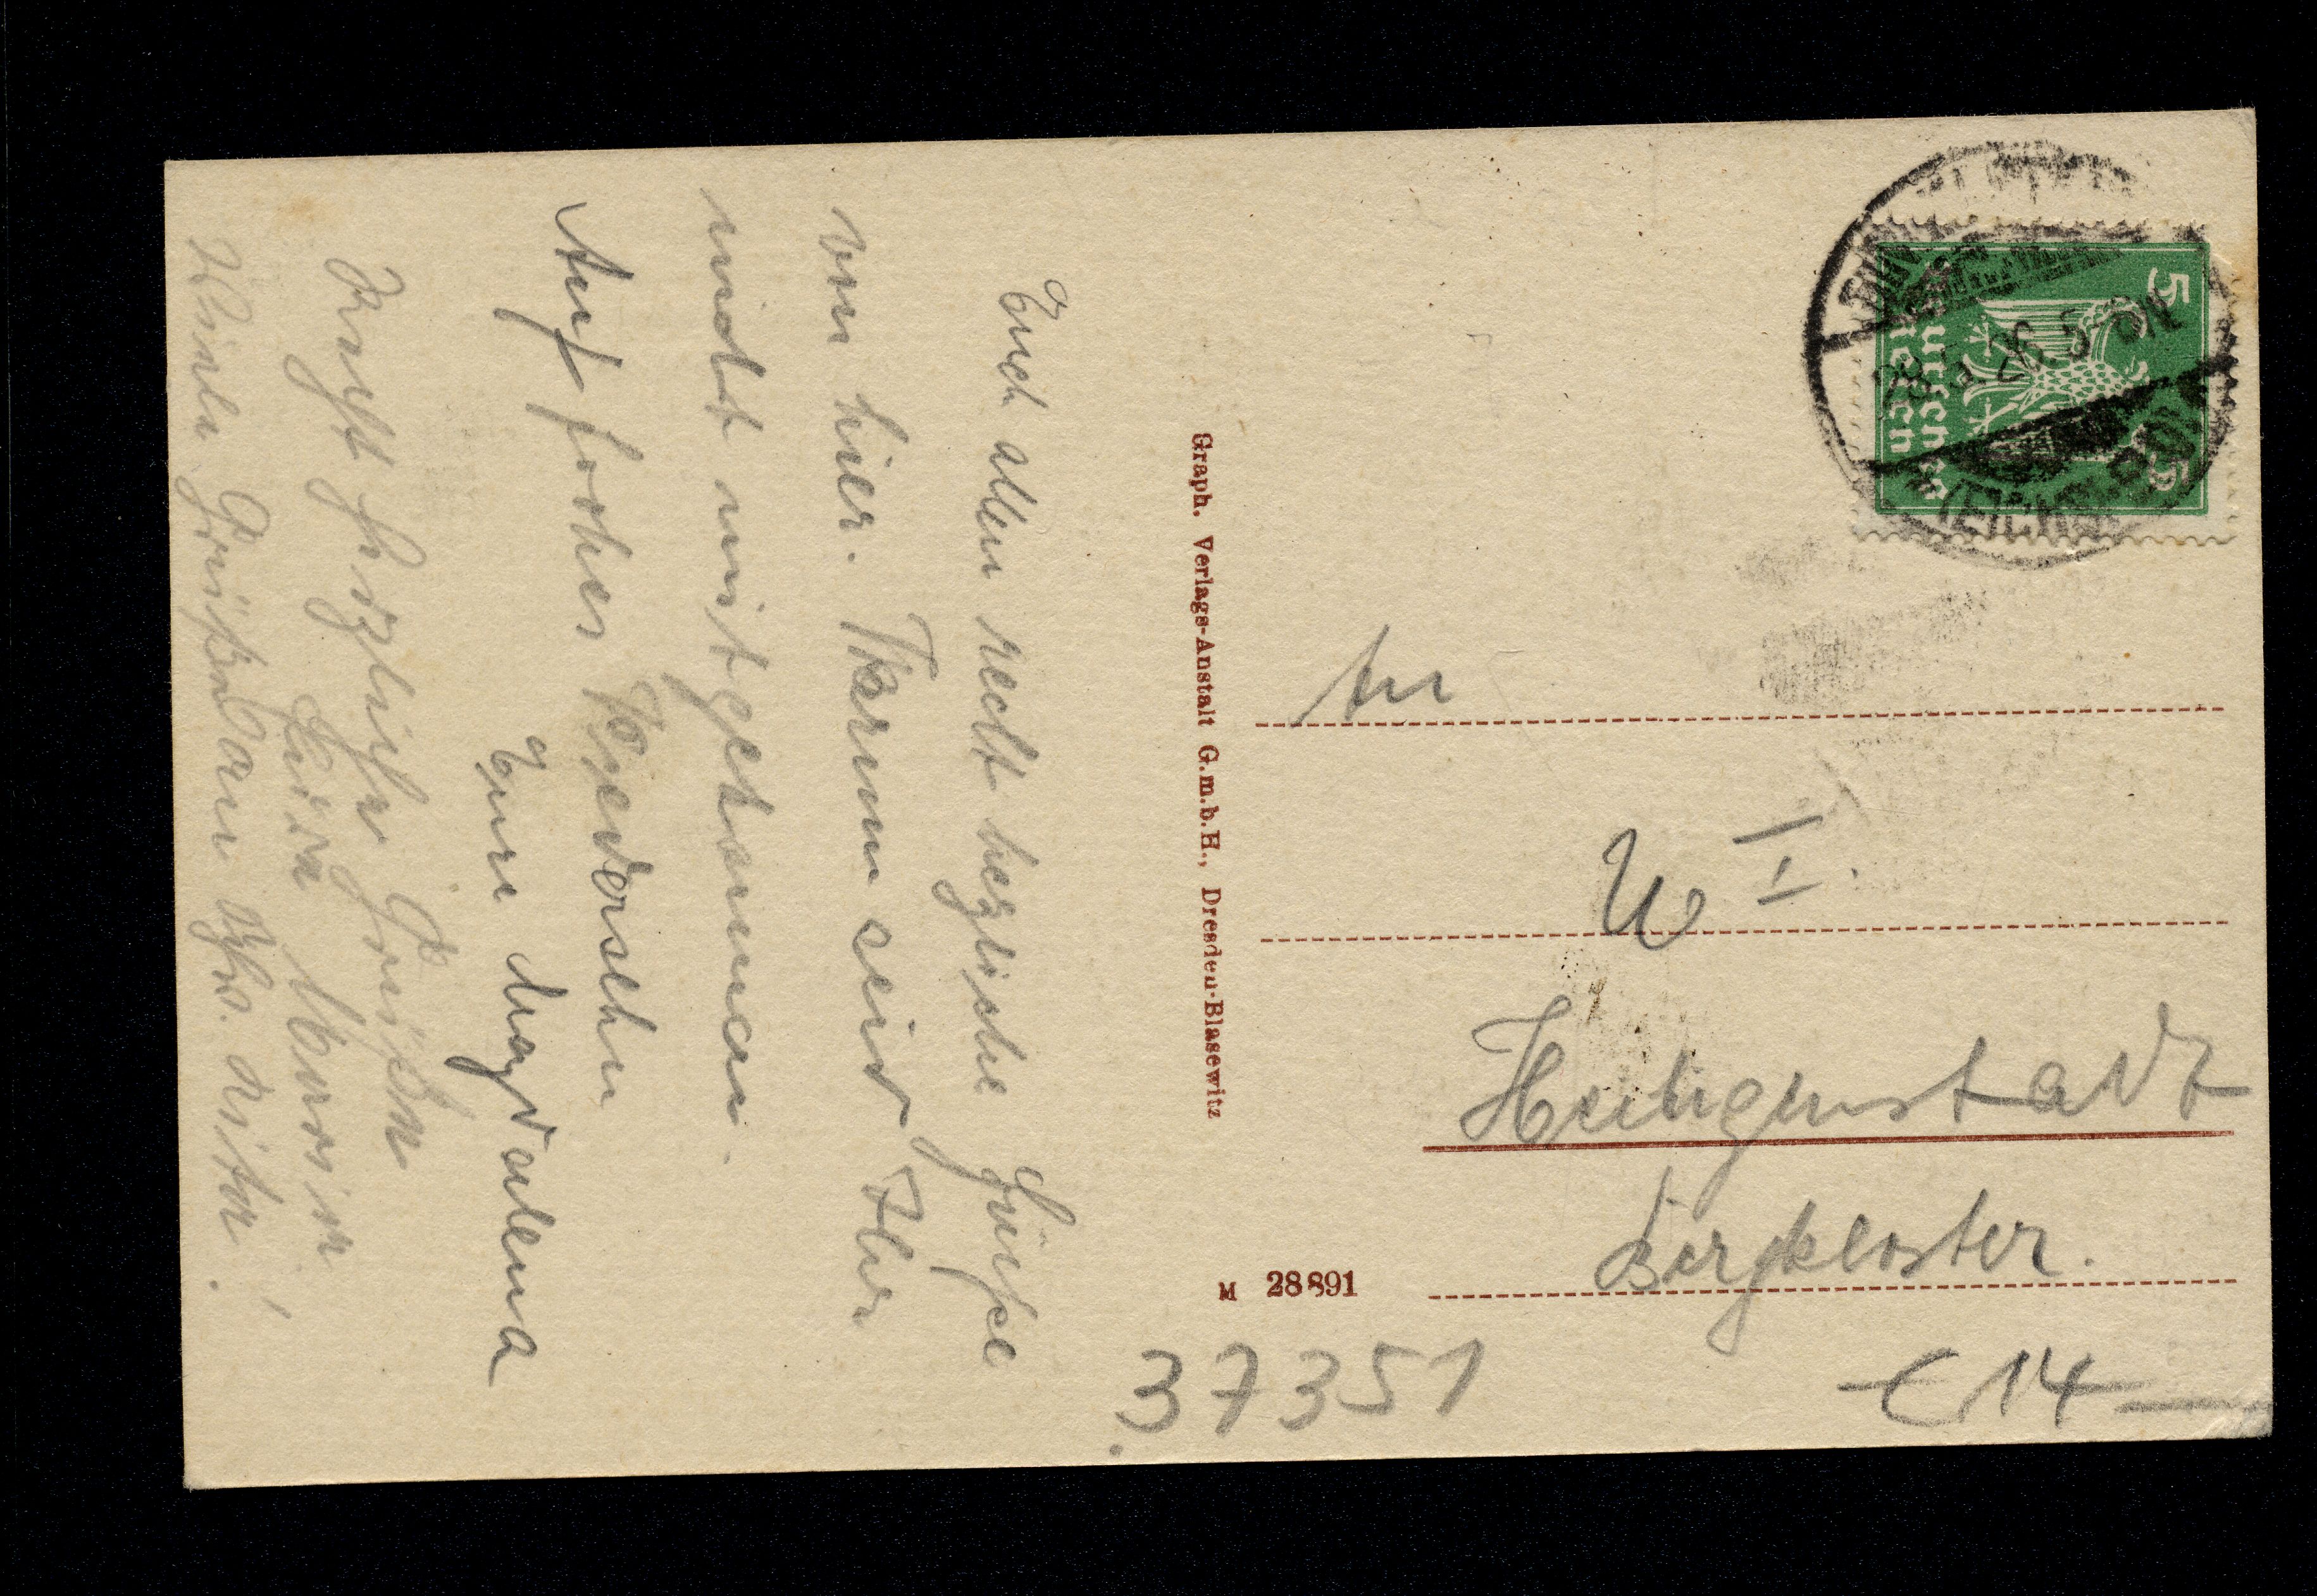 Euch allen recht herzliche Grüße
von hier. Warum seid Ihr
nicht mitgekommen.
Auf frohes Wiedersehn
Eure Magdalena
Recht herzliche Grüße
Graph. Verlags-Anstalt G.m.b.H., Dresden-Blasewitz
M 28891
5 5
Deutsches
Reich
An
U I.
Heiligenstadt
Bergkloster.
37351
€ 14